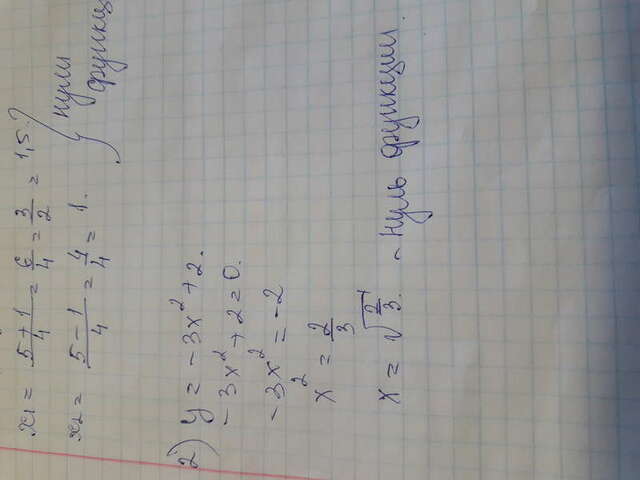 x₁ = (5+1)/4 = 6/4 = 3/2 = 1,5. } нули
x₂ = (5-1)/4 = 4/4 = 1. функц
2) y = -3x² + 2.
-3x² + 2 = 0.
-3x² = -2
x² = 2/3
x = √(2/3). - нуль функции.